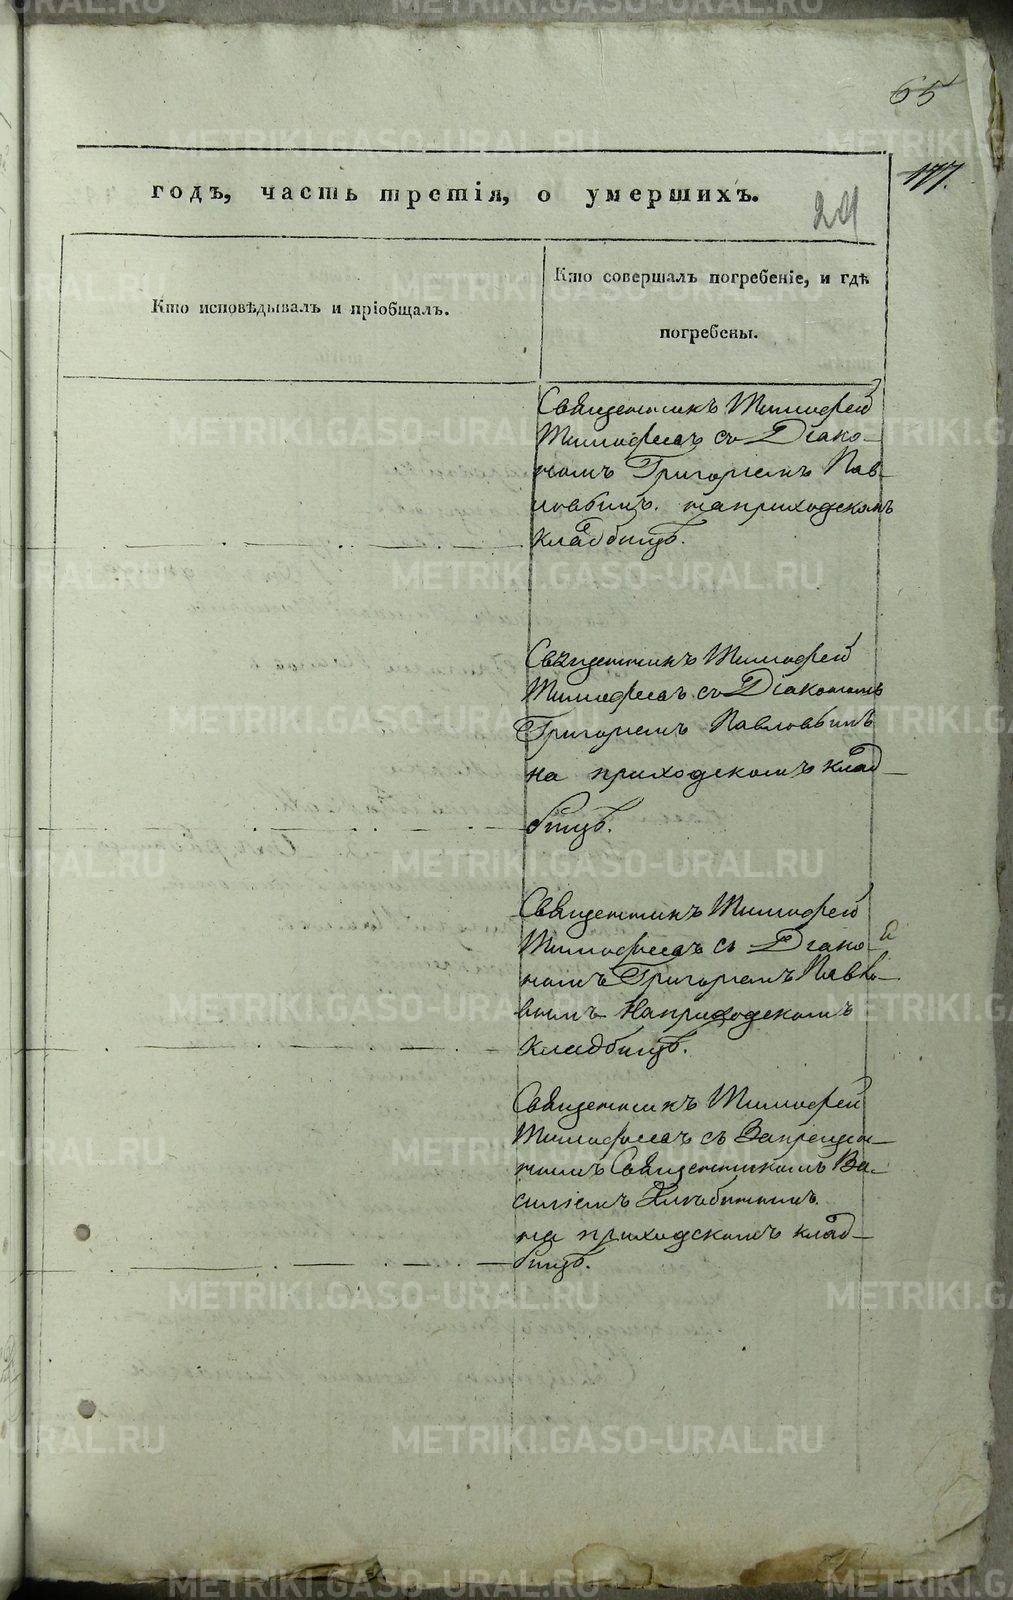 65
177.
годъ, часть третія, о умершихъ.
29
Кто исповѣдывалъ и пріобщалъ.
Кто совершалъ погребеніе, и гдѣ
погребены.
Священникъ Тимофей
Тимофеевъ съ Діако-
номъ Григоріемъ Пав-
ловымъ. наприходскомъ
кладбищѣ.
Священникъ Тимофей
Тимофеевъ съ Діакономъ
Григоріемъ Павловымъ
на приходскомъ клад-
бищѣ.
Священникъ Тимофей
Тимофеевъ съ Діако-
номъ Григоріемъ Павло-
вымъ наприходскомъ
кладбищѣ.
Священникъ Тимофей
Тимофеевъ съ Запрещен-
нымъ Священникомъ Ва-
силіемъ
на приходскомъ клад-
бищѣ.
METRIKI.GASO-URAL.RU